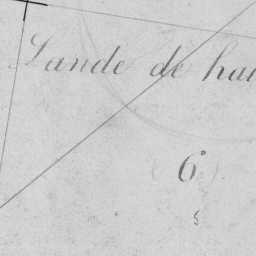 Lande de hau
(6)